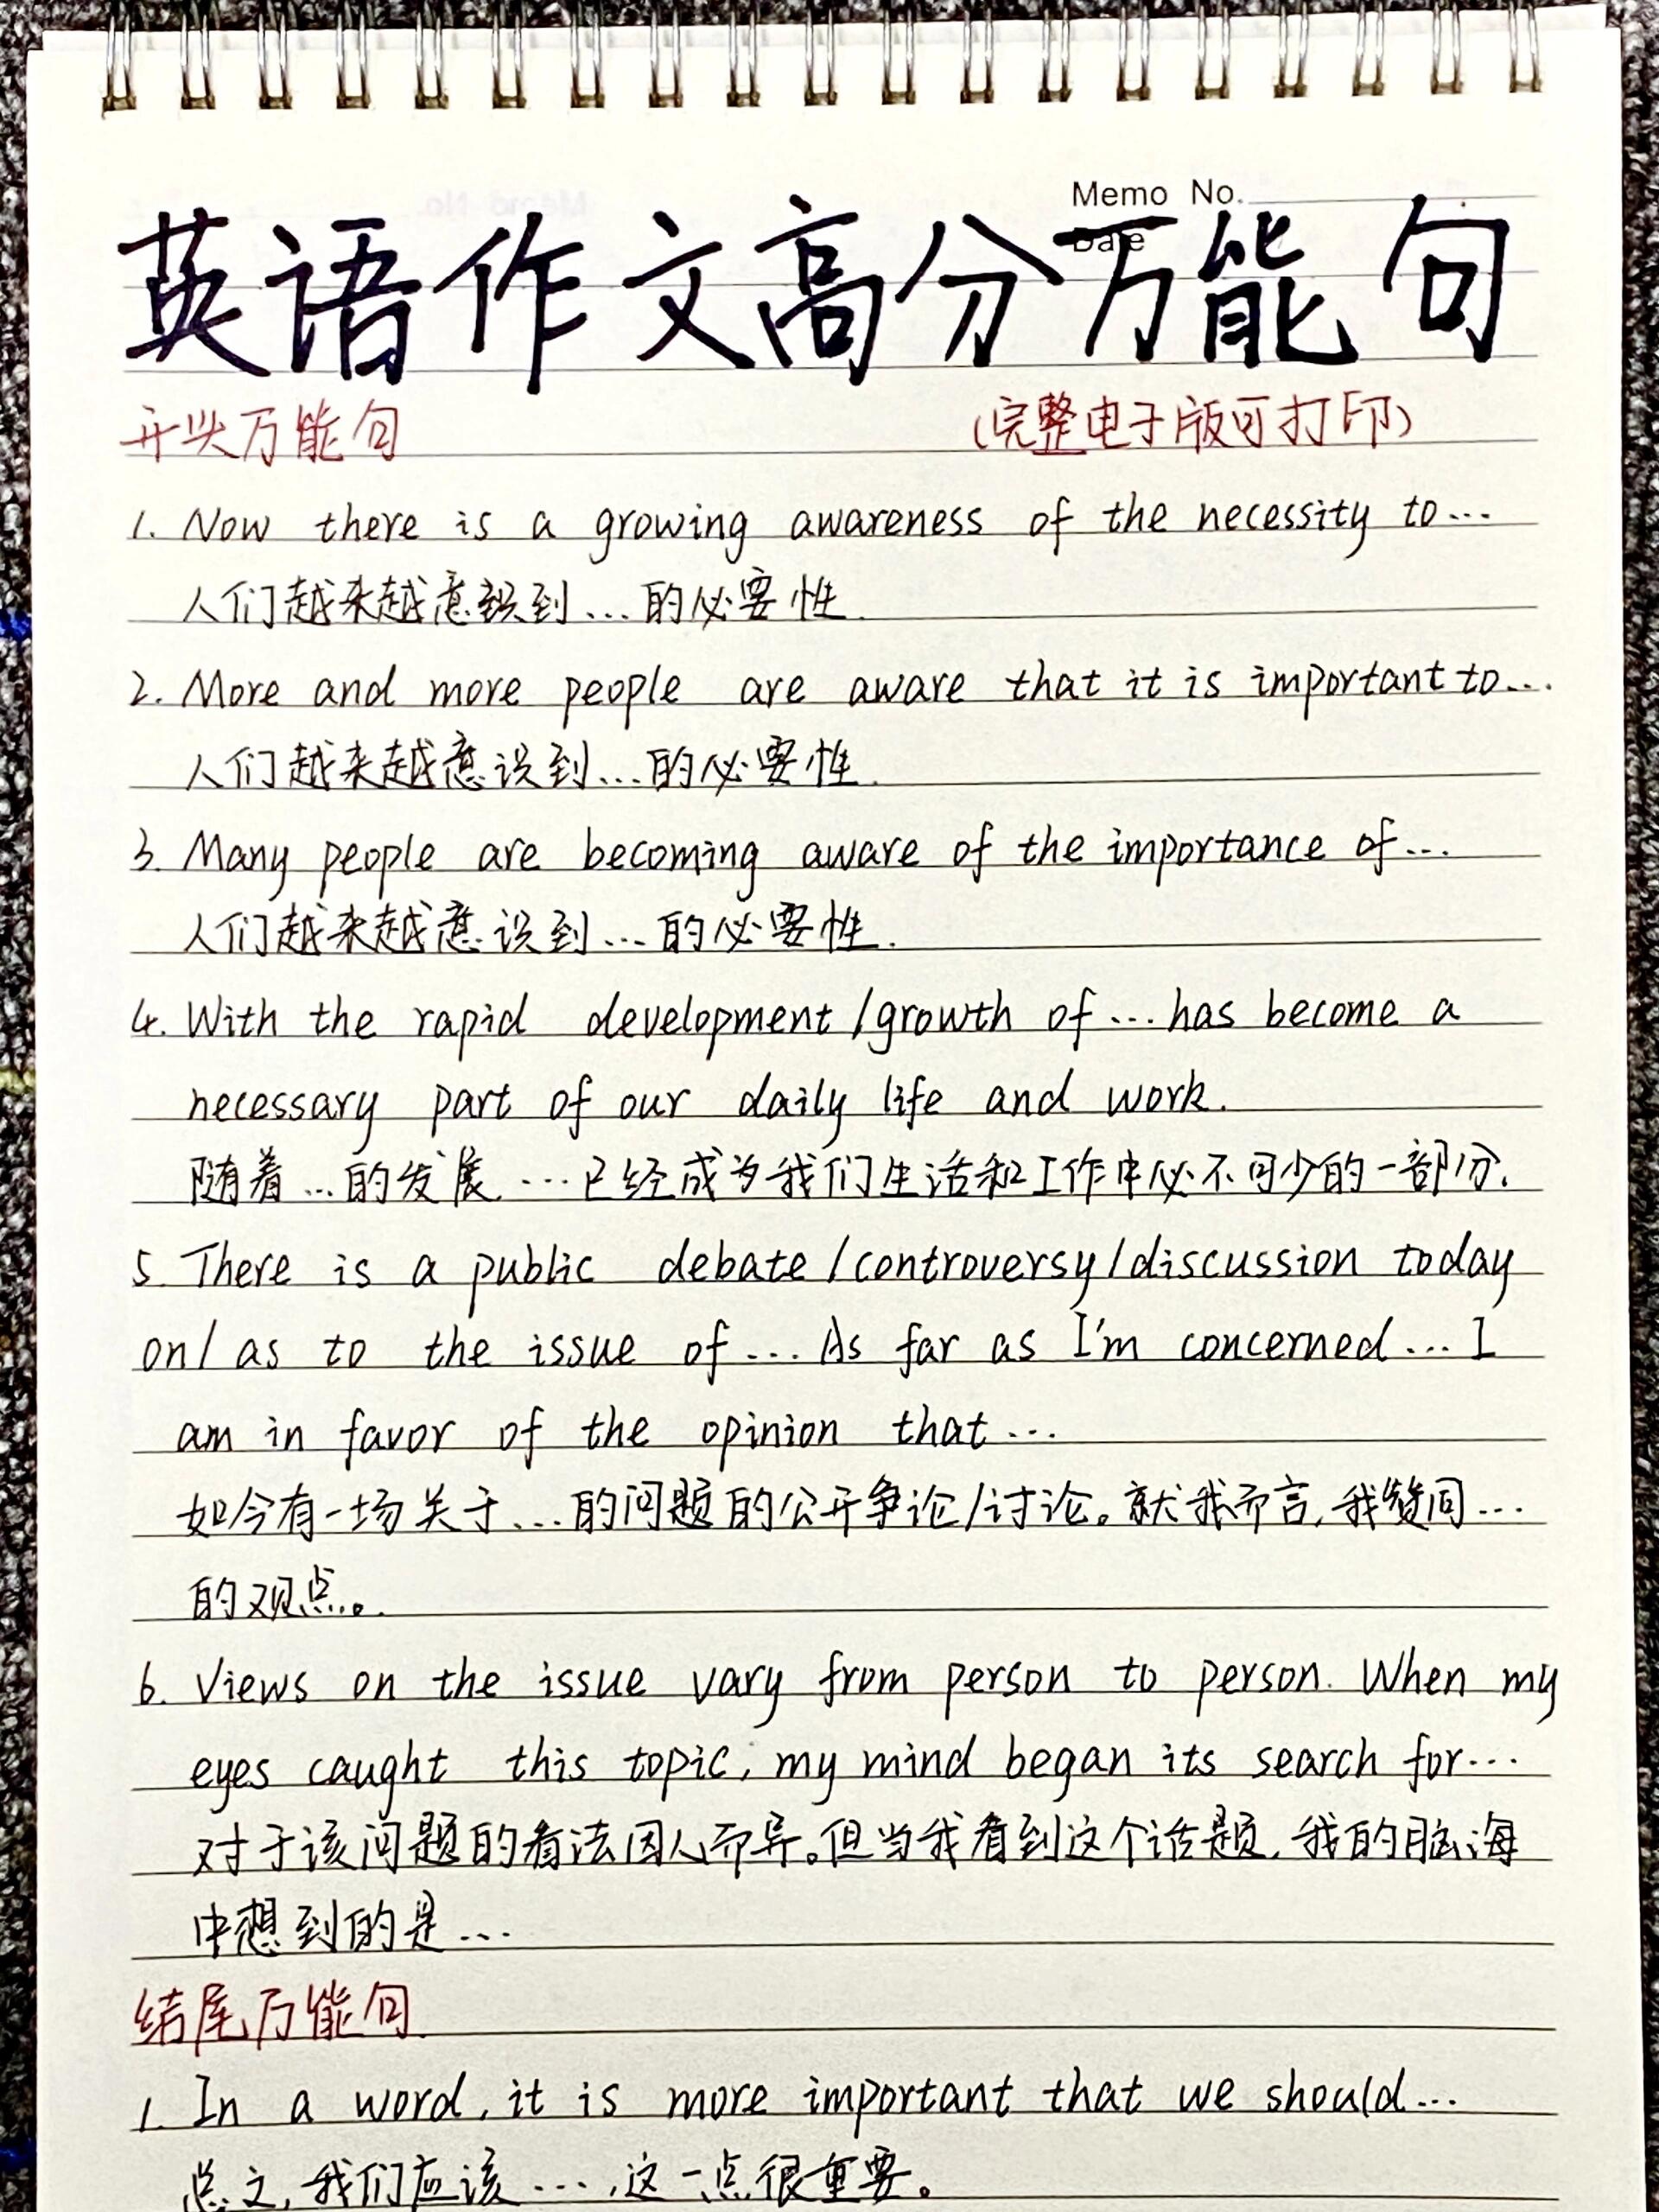 Memo No.
Date
英语作文高分万能句
开头万能句 (完整电子版可打印)
1. Now there is a growing awareness of the necessity to...
人们越来越意识到...的必要性.
2. More and more people are aware that it is important to...
人们越来越意识到...的必要性.
3. Many people are becoming aware of the importance of...
人们越来越意识到...的必要性.
4. With the rapid development/growth of...has become a
necessary part of our daily life and work.
随着...的发展,...已经成为我们生活和工作中必不可少的一部分.
5. There is a public debate/controversy/discussion today
on/as to the issue of... As far as I'm concerned... I
am in favor of the opinion that...
如今有一场关于...的问题的公开争论/讨论。就我而言,我赞同...
的观点。
6. Views on the issue vary from person to person. When my
eyes caught this topic, my mind began its search for...
对于该问题的看法因人而异。但当我看到这个话题,我的脑海
中想到的是...
结尾万能句
1. In a word, it is more important that we should...
总之,我们应该...,这一点很重要。